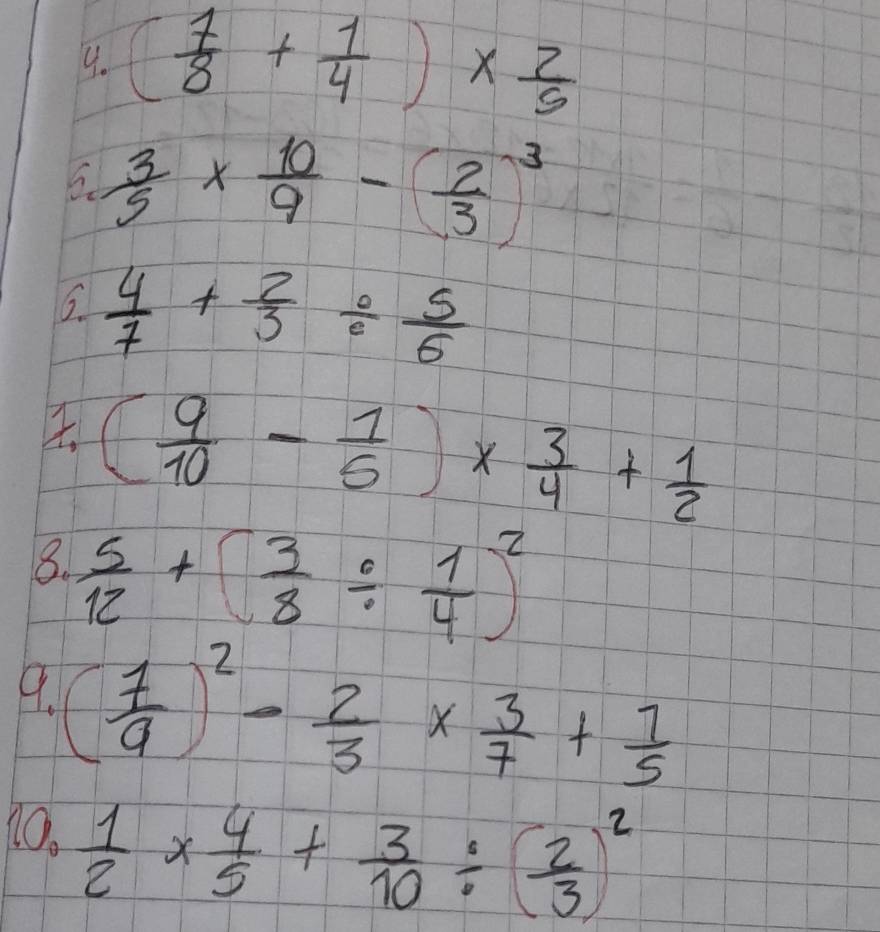 4. (7/8 + 1/4) × 2/5
5. 3/5 × 10/9 - (2/3)³
6. 4/7 + 2/3 ÷ 5/6
7. (9/10 - 1/5) × 3/4 + 1/2
8. 5/12 + (3/8 ÷ 1/4)²
9. (7/9)² - 2/3 × 3/7 + 1/5
10. 1/2 × 4/5 + 3/10 ÷ (2/3)²